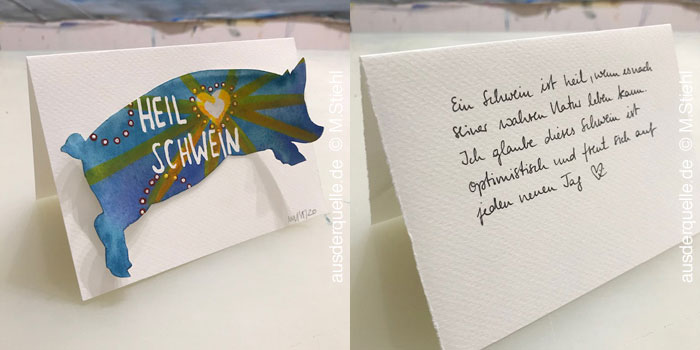 HEIL
SCHWEIN
ausderquelle.de © M Stiehl
Ein Schwein ist heil, wenn es nach
seiner wahren Natur leben kann.
Ich glaube dieses Schwein ist
optimistisch und freut sich auf
jeden neuen Tag
ausderquelle.de © M Stiehl